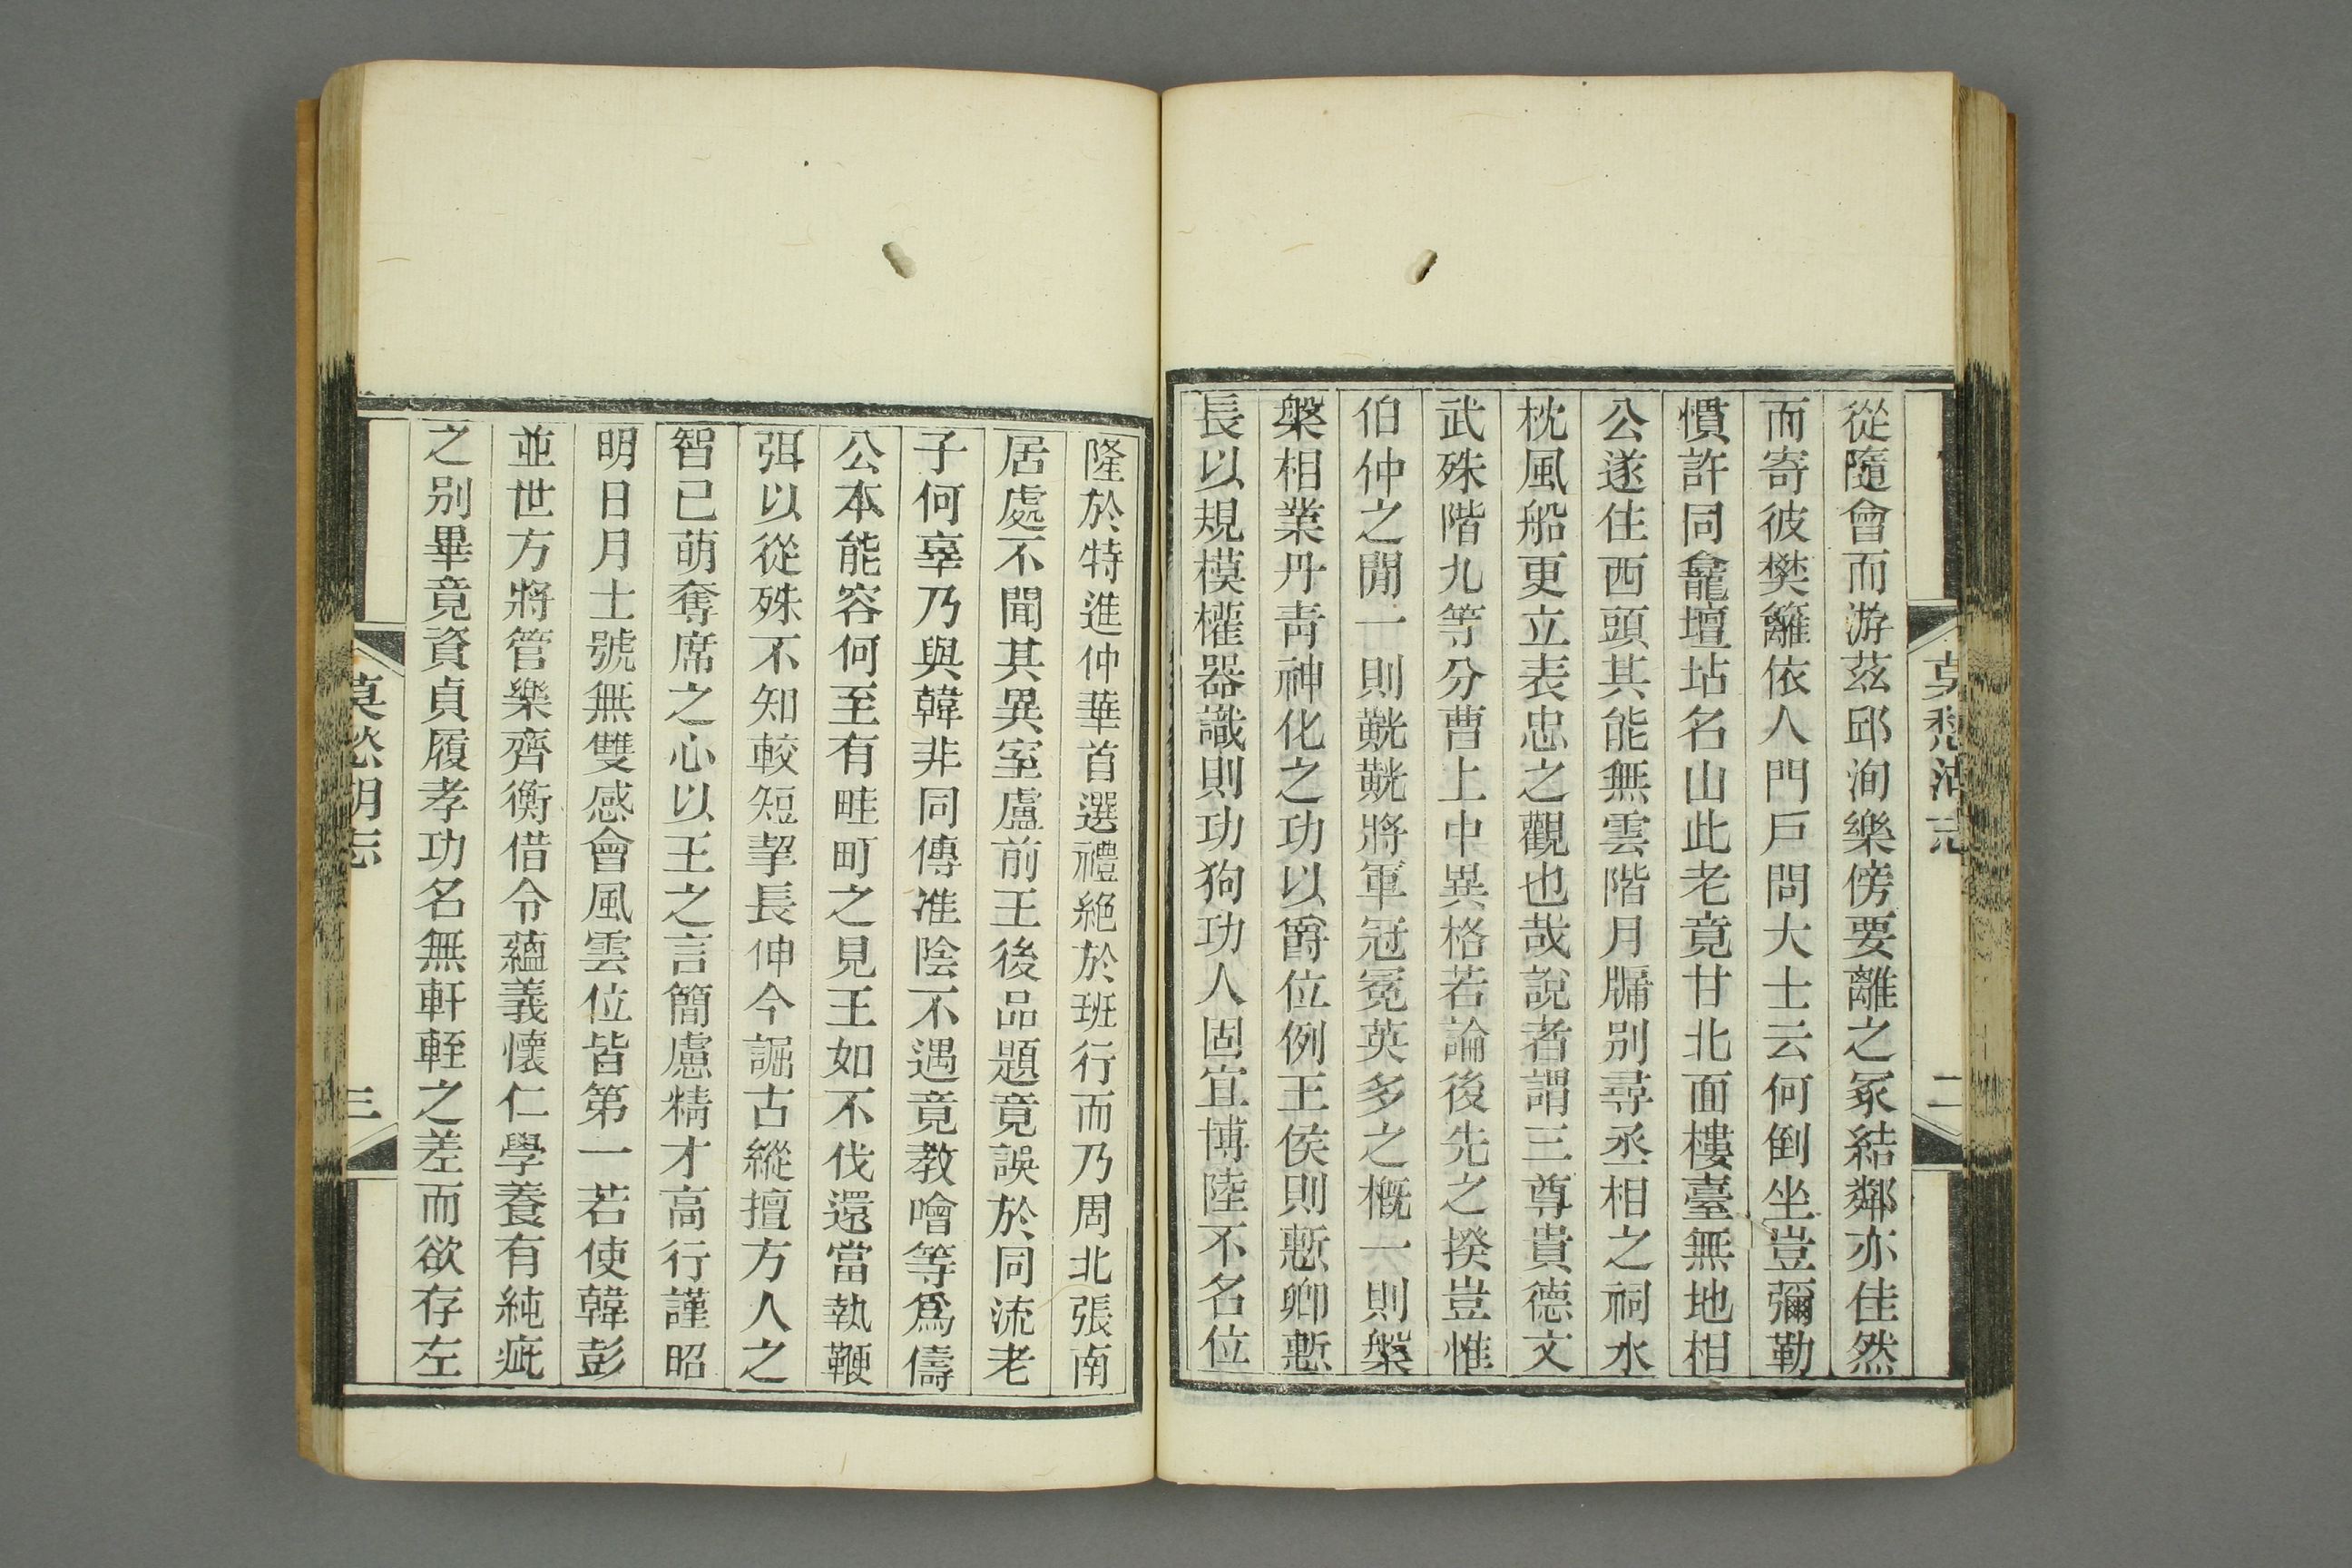 莫愁湖志
二
從隨會而游茲邱洵樂傍要離之冢結鄰亦佳然
而寄彼樊籬依人門戸問大士云何倒坐豈彌勒
慣許同龕壇坫名山此老竟甘北面樓臺無地相
公遂住西頭其能無雲階月牖别尋丞相之祠水
枕風船更立表忠之觀也哉說者謂三尊貴德文
武殊階九等分曹上中異格若論後先之揆豈惟
伯仲之閒一則觥觥將軍冠冕英多之槪一則槃
槃相業丹靑神化之功以爵位例王侯則慙卿慙
長以規模權器識則功狗功人固宜博陸不名位
隆於特進仲華首選禮絶於班行而乃周北張南
居處不聞其異室盧前王後品題竟誤於同流老
子何辜乃與韓非同傳淮陰不遇竟敎噲等爲儔
公本能容何至有畦町之見王如不伐還當執鞭
弭以從殊不知較短挈長伸今詘古縱擅方人之
智已萌奪席之心以王之言簡慮精才高行謹昭
明日月士號無雙感會風雲位皆第一若使韓彭
並世方將管樂齊衡借令蘊義懷仁學養有純疵
之别畢竟資貞履孝功名無軒輊之差而欲存左
莫愁湖志
三